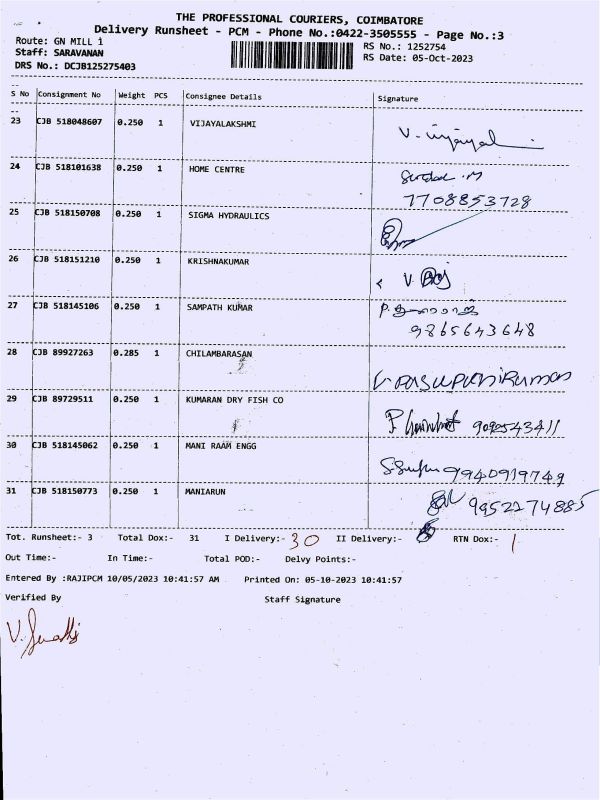 THE PROFESSIONAL COURIERS, COIMBATORE
Delivery Runsheet - PCM - Phone No.:0422-3505555 - Page No.:3
Route: GN MILL 1
RS No.: 1252754
Staff: SARAVANAN
RS Date: 05-Oct-2023
DRS No.: DCJB125275403
S No Consignment No Weight PCS Consignee Details Signature
23 CJB 518048607 0.250 1 VIJAYALAKSHMI
24 CJB 518101638 0.250 1 HOME CENTRE
7708853728
25 CJB 518150708 0.250 1 SIGMA HYDRAULICS
26 CJB 518151210 0.250 1 KRISHNAKUMAR
27 CJB 518145106 0.250 1 SAMPATH KUMAR
9865643648
28 CJB 89927263 0.285 1 CHILAMBARASAN
29 CJB 89729511 0.250 1 KUMARAN DRY FISH CO
30 CJB 518145062 0.250 1 MANI RAAM ENGG
9940919749
31 CJB 518150773 0.250 1 MANIARUN
9952274885
Tot. Runsheet:- 3 Total Dox:- 31 I Delivery:- 30 II Delivery:- RTN Dox:- 1
Out Time:- In Time:- Total POD:- Delvy Points:-
Entered By :RAJIPCM 10/05/2023 10:41:57 AM Printed On: 05-10-2023 10:41:57
Verified By Staff Signature